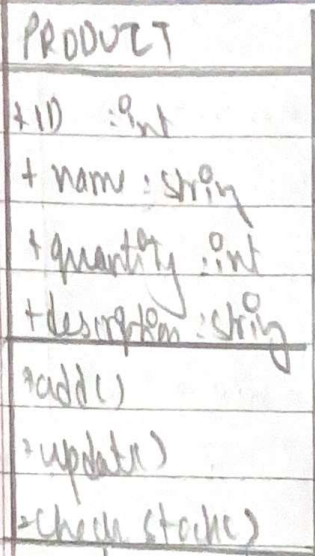 PRODUCT
+ ID : int
+ name : string
+ quantity : int
+ description : string
+ add()
+ update()
+ check stock()